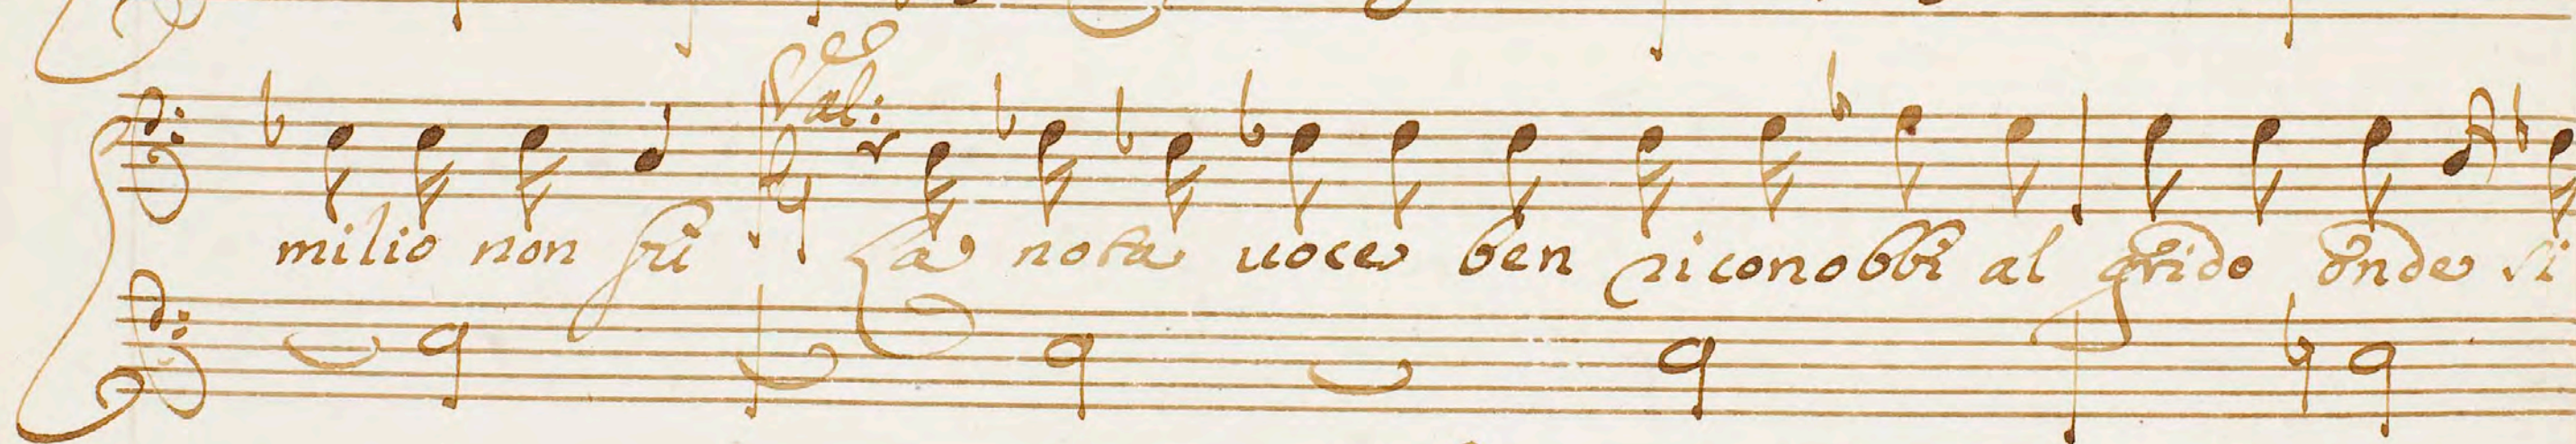 Val:
milio non fù La nota uoce ben riconobbi al grido onde si